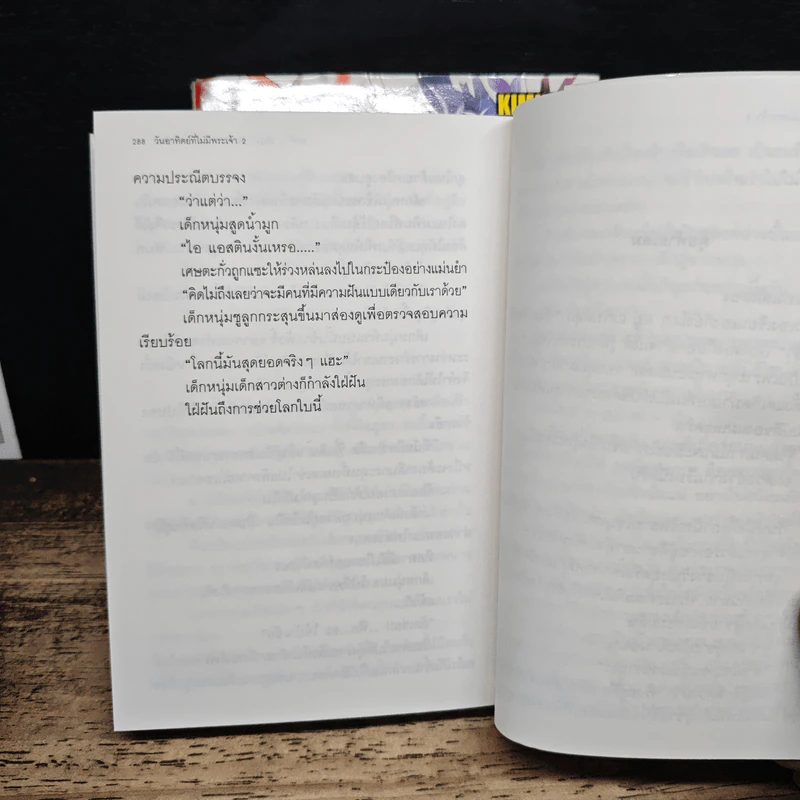 KIM
288 วันอาทิตย์ที่ไม่มีพระเจ้า 2
ความประณีตบรรจง
“ว่าแต่ว่า...”
เด็กหนุ่มสูดน้ำมูก
“ไอ แอสตินงั้นเหรอ.....”
เศษตะกั่วถูกแซะให้ร่วงหล่นลงไปในกระป๋องอย่างแม่นยำ
“คิดไม่ถึงเลยว่าจะมีคนที่มีความฝันแบบเดียวกับเราด้วย”
เด็กหนุ่มชูลูกกระสุนขึ้นมาส่องดูเพื่อตรวจสอบความ
เรียบร้อย
“โลกนี้มันสุดยอดจริงๆ แฮะ”
เด็กหนุ่มเด็กสาวต่างก็กำลังใฝ่ฝัน
ใฝ่ฝันถึงการช่วยโลกใบนี้